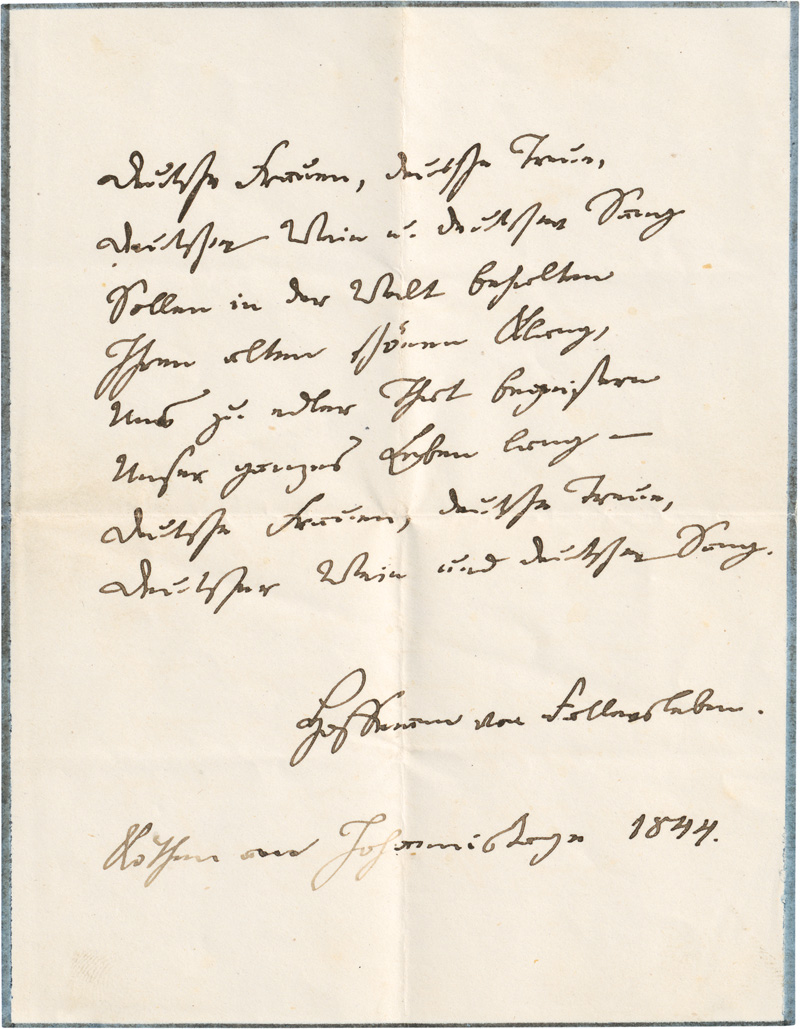 Deutsche Frauen, deutsche Treue,
Deutscher Wein u. deutscher Sang
Sollen in der Welt behalten
Ihren alten schönen Klang,
Uns zu edler That begeistern
Unser ganzes Leben lang —
Deutsche Frauen, deutsche Treue,
Deutscher Wein und deutscher Sang.
Hoffmann von Fallersleben.
Köthen am Johannistage 1844.